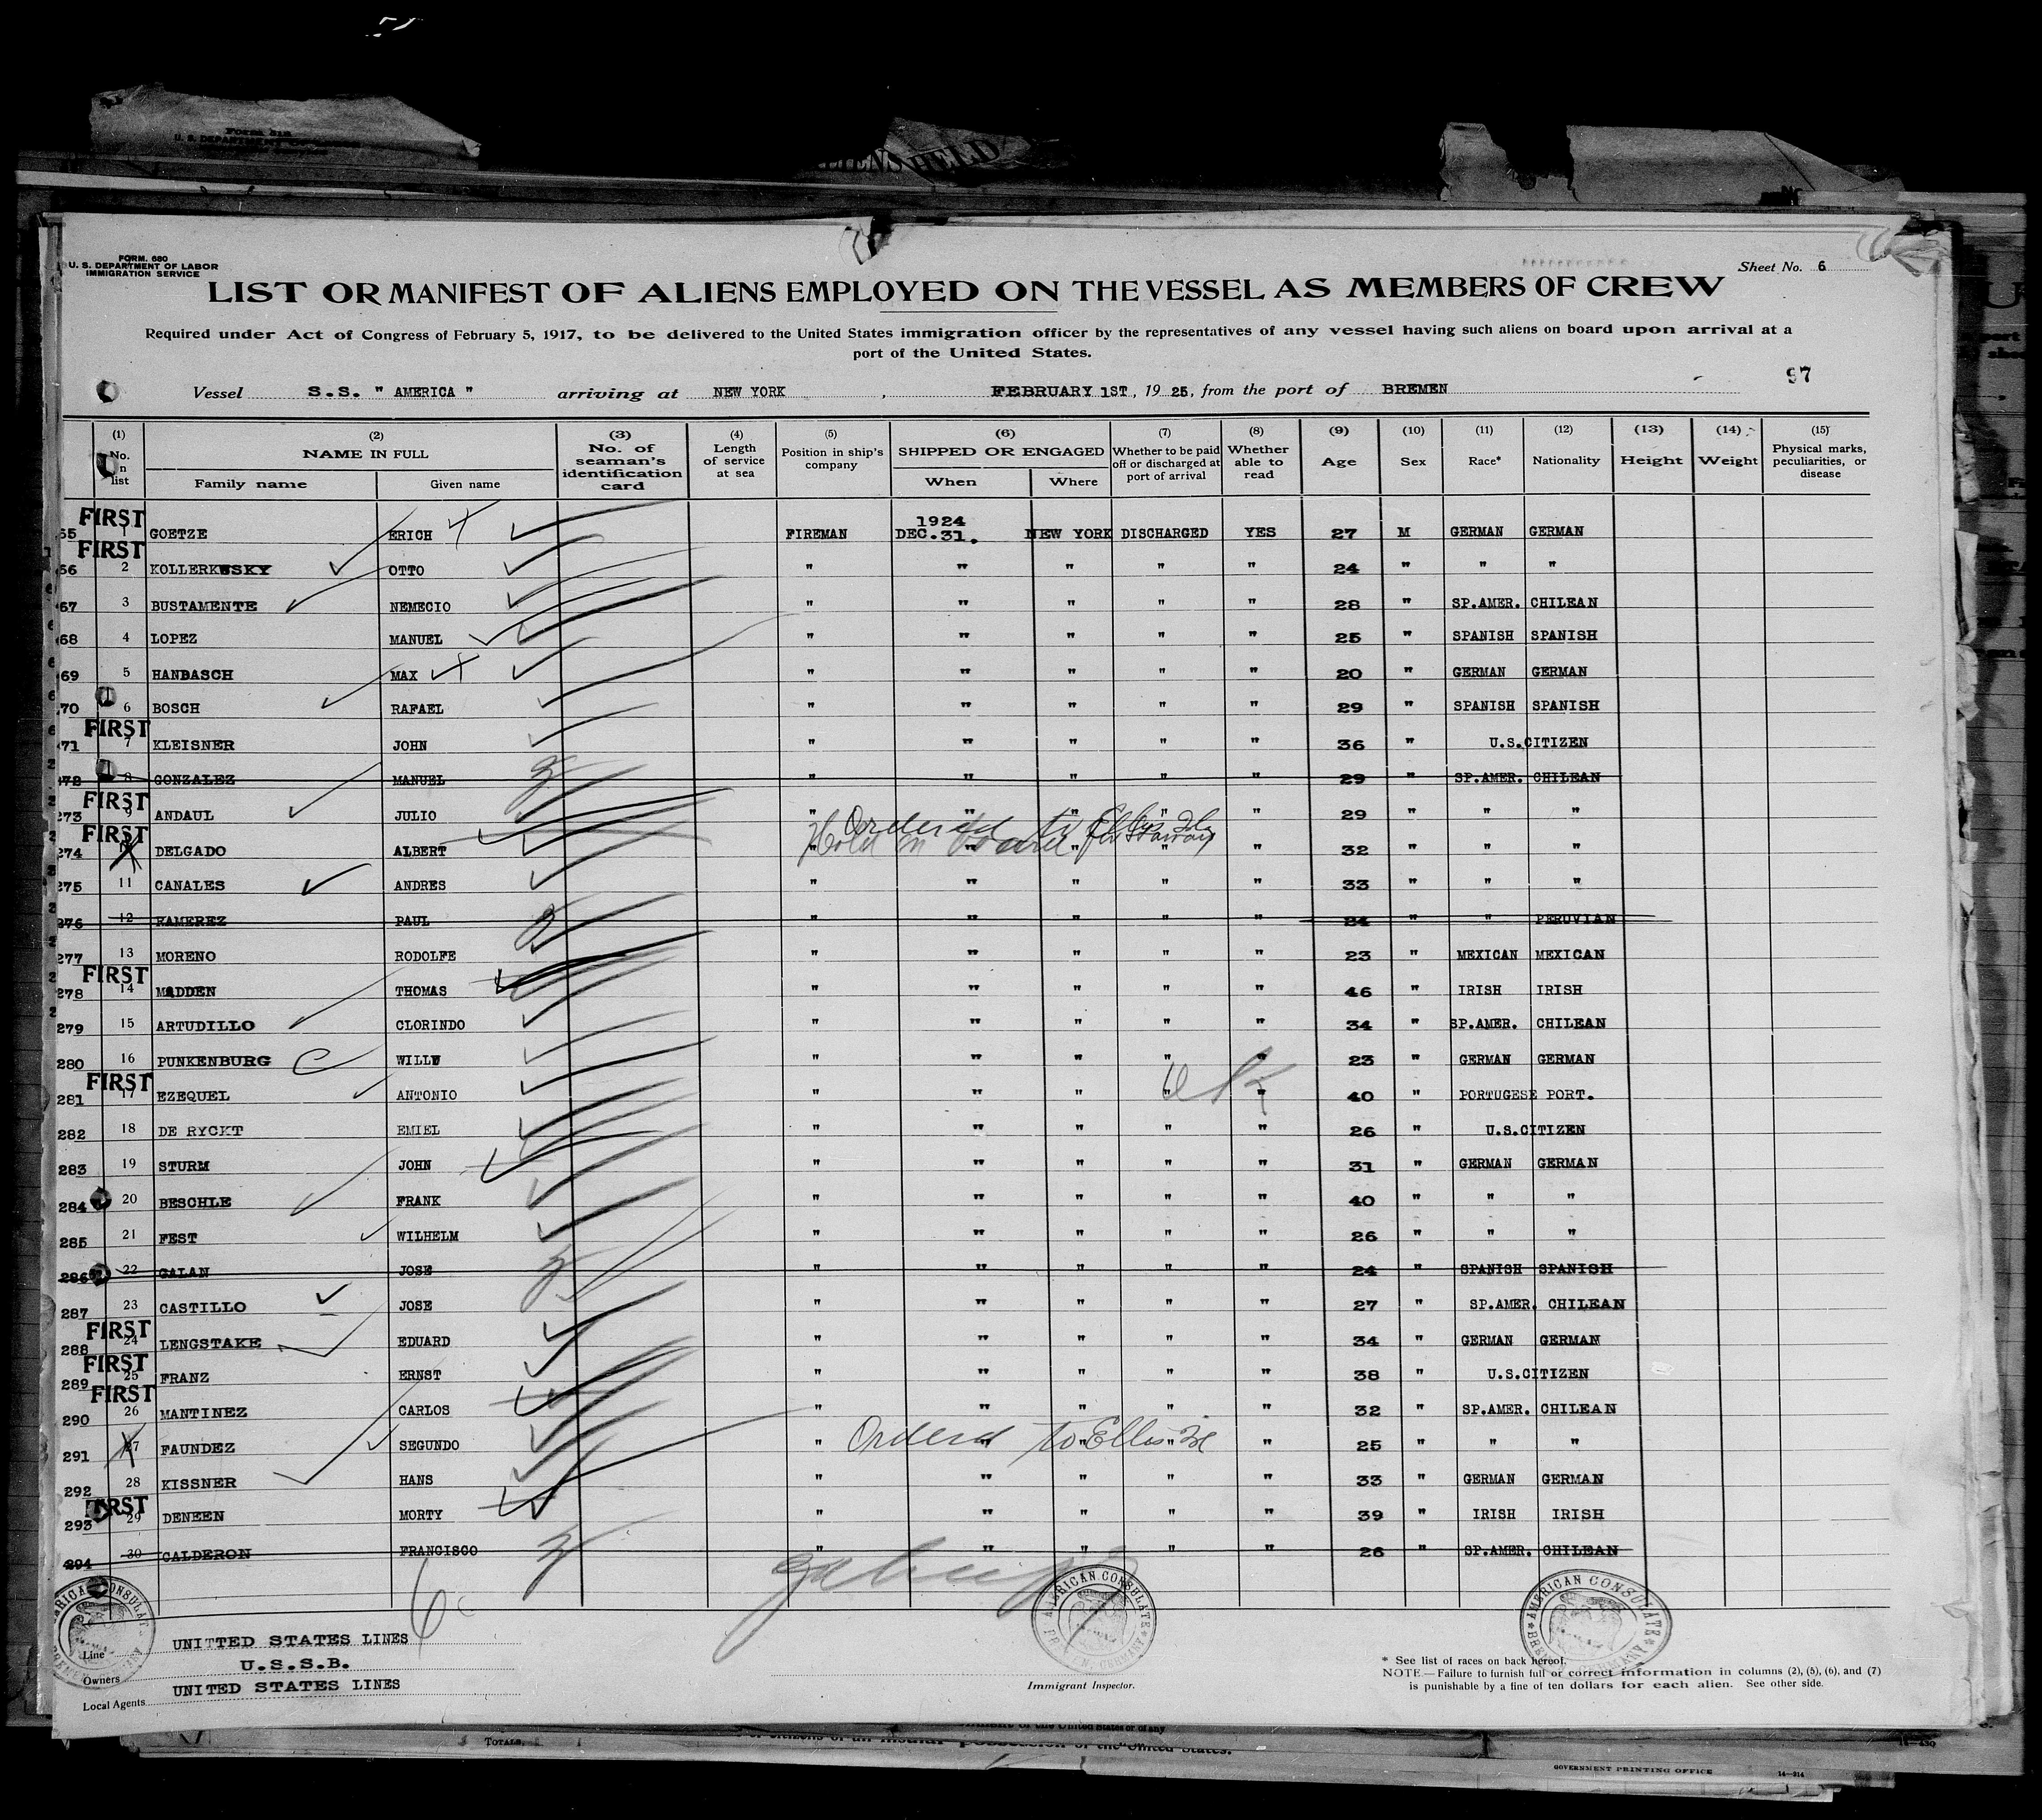 Form 518
U. S. DEPARTMENT OF LABOR
ALIENS HELD
FORM. 680
U. S. DEPARTMENT OF LABOR
IMMIGRATION SERVICE
Sheet No. 6
LIST OR MANIFEST OF ALIENS EMPLOYED ON THE VESSEL AS MEMBERS OF CREW
Required under Act of Congress of February 5, 1917, to be delivered to the United States immigration officer by the representatives of any vessel having such aliens on board upon arrival at a
port of the United States.
97
Vessel S.S. " AMERICA " arriving at NEW YORK , FEBRUARY 1ST, 19 25, from the port of BREMEN
(1) No. in list (2) NAME IN FULL Family name Given name (3) No. of seaman's identification card (4) Length of service at sea (5) Position in ship's company (6) SHIPPED OR ENGAGED When Where (7) Whether to be paid off or discharged at port of arrival (8) Whether able to read (9) Age (10) Sex (11) Race* (12) Nationality (13) Height (14) Weight (15) Physical marks, peculiarities, or disease
FIRST
1924
65 1 GOETZE ERICH FIREMAN DEC.31. NEW YORK DISCHARGED YES 27 M GERMAN GERMAN
FIRST
66 2 KOLLERKWSKY OTTO " " " " " 24 " " "
67 3 BUSTAMENTE NEMECIO " " " " " 28 " SP.AMER. CHILEAN
68 4 LOPEZ MANUEL " " " " " 25 " SPANISH SPANISH
69 5 HANBASCH MAX " " " " " 20 " GERMAN GERMAN
70 6 BOSCH RAFAEL " " " " " 29 " SPANISH SPANISH
FIRST
71 7 KLEISNER JOHN " " " " " 36 " U.S.CITIZEN
272 8 GONZALEZ MANUEL " " " " " 29 " SP.AMER. CHILEAN
FIRST
273 9 ANDAUL JULIO " " " " " 29 " " "
Ordered to Ellis Isl
FIRST
Held on board
274 DELGADO ALBERT " " " " " 32 " " "
275 11 CANALES ANDRES " " " " " 33 " " "
276 12 RAMEREZ PAUL " " " " " 24 " " PERUVIAN
277 13 MORENO RODOLFE " " " " " 23 " MEXICAN MEXICAN
FIRST
278 14 MADDEN THOMAS " " " " " 46 " IRISH IRISH
279 15 ARTUDILLO CLORINDO " " " " " 34 " SP.AMER. CHILEAN
280 16 PUNKENBURG WILLY " " " " " 23 " GERMAN GERMAN
FIRST
281 17 EZEQUEL ANTONIO " " " " " 40 " PORTUGESE PORT.
282 18 DE RYCKT EMIEL " " " " " 26 " U.S.CITIZEN
283 19 STURM JOHN " " " " " 31 " GERMAN GERMAN
284 20 BESCHLE FRANK " " " " " 40 " " "
285 21 FEST WILHELM " " " " " 26 " " "
286 22 GALAN JOSE " " " " " 24 " SPANISH SPANISH
287 23 CASTILLO JOSE " " " " " 27 " SP.AMER. CHILEAN
FIRST
288 24 LENGSTAKE EDUARD " " " " " 34 " GERMAN GERMAN
FIRST
289 25 FRANZ ERNST " " " " " 38 " U.S.CITIZEN
FIRST
290 26 MANTINEZ CARLOS " " " " " 32 " SP.AMER. CHILEAN
Ordered to Ellis Isl
291 27 FAUNDEZ SEGUNDO " " " " " 25 " " "
292 28 KISSNER HANS " " " " " 33 " GERMAN GERMAN
FIRST
293 29 DENEEN MORTY " " " " " 39 " IRISH IRISH
294 30 CALDERON FRANCISCO " " " " " 26 " SP.AMER. CHILEAN
6
AMERICAN CONSULATE BREMEN, GERMANY
AMERICAN CONSULATE BREMEN, GERMANY
AMERICAN CONSULATE BREMEN, GERMANY
Line UNITTED STATES LINES
Owners U.S.S.B.
Local Agents UNITED STATES LINES
Immigrant Inspector.
* See list of races on back hereof.
NOTE.—Failure to furnish full or correct information in columns (2), (5), (6), and (7)
is punishable by a fine of ten dollars for each alien. See other side.
TOTALS,
of the United States or of any
of citizens of an insular possession of the United States.
GOVERNMENT PRINTING OFFICE 14—214